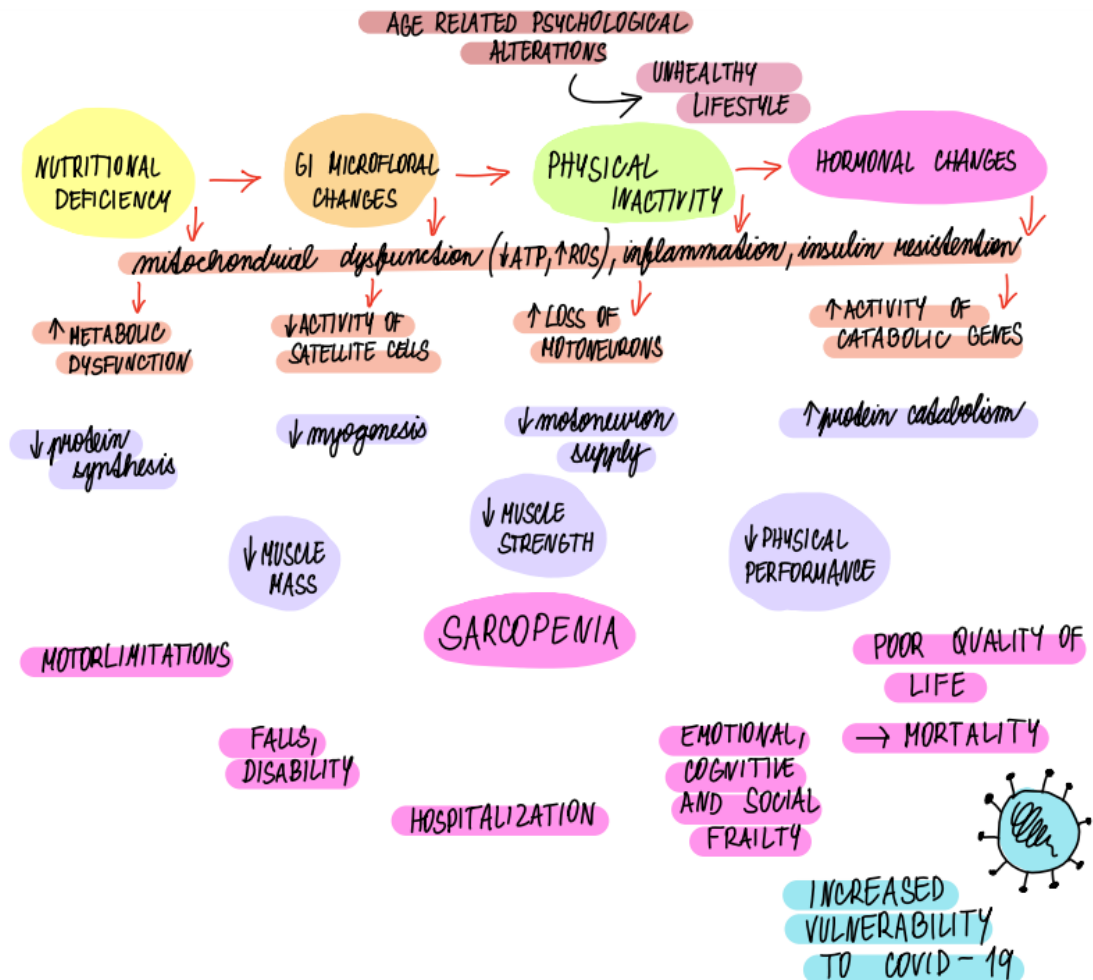 AGE RELATED PSYCHOLOGICAL
ALTERATIONS
UNHEALTHY
LIFESTYLE
NUTRITIONAL
DEFICIENCY
GI MICROFLORAL
CHANGES
PHYSICAL
INACTIVITY
HORMONAL CHANGES
mitochondrial dysfunction (↓ATP, ↑ROS), inflammation, insulin resistention
↑ METABOLIC
DYSFUNCTION
↓ ACTIVITY OF
SATELLITE CELLS
↑ LOSS OF
MOTONEURONS
↑ ACTIVITY OF
CATABOLIC GENES
↓ protein
synthesis
↓ myogenesis
↓ motoneuron
supply
↑ protein catabolism
↓ MUSCLE
MASS
↓ MUSCLE
STRENGTH
↓ PHYSICAL
PERFORMANCE
SARCOPENIA
MOTORLIMITATIONS
FALLS,
DISABILITY
HOSPITALIZATION
EMOTIONAL,
COGNITIVE
AND SOCIAL
FRAILTY
POOR QUALITY OF
LIFE
→ MORTALITY
INCREASED
VULNERABILITY
TO COVID-19